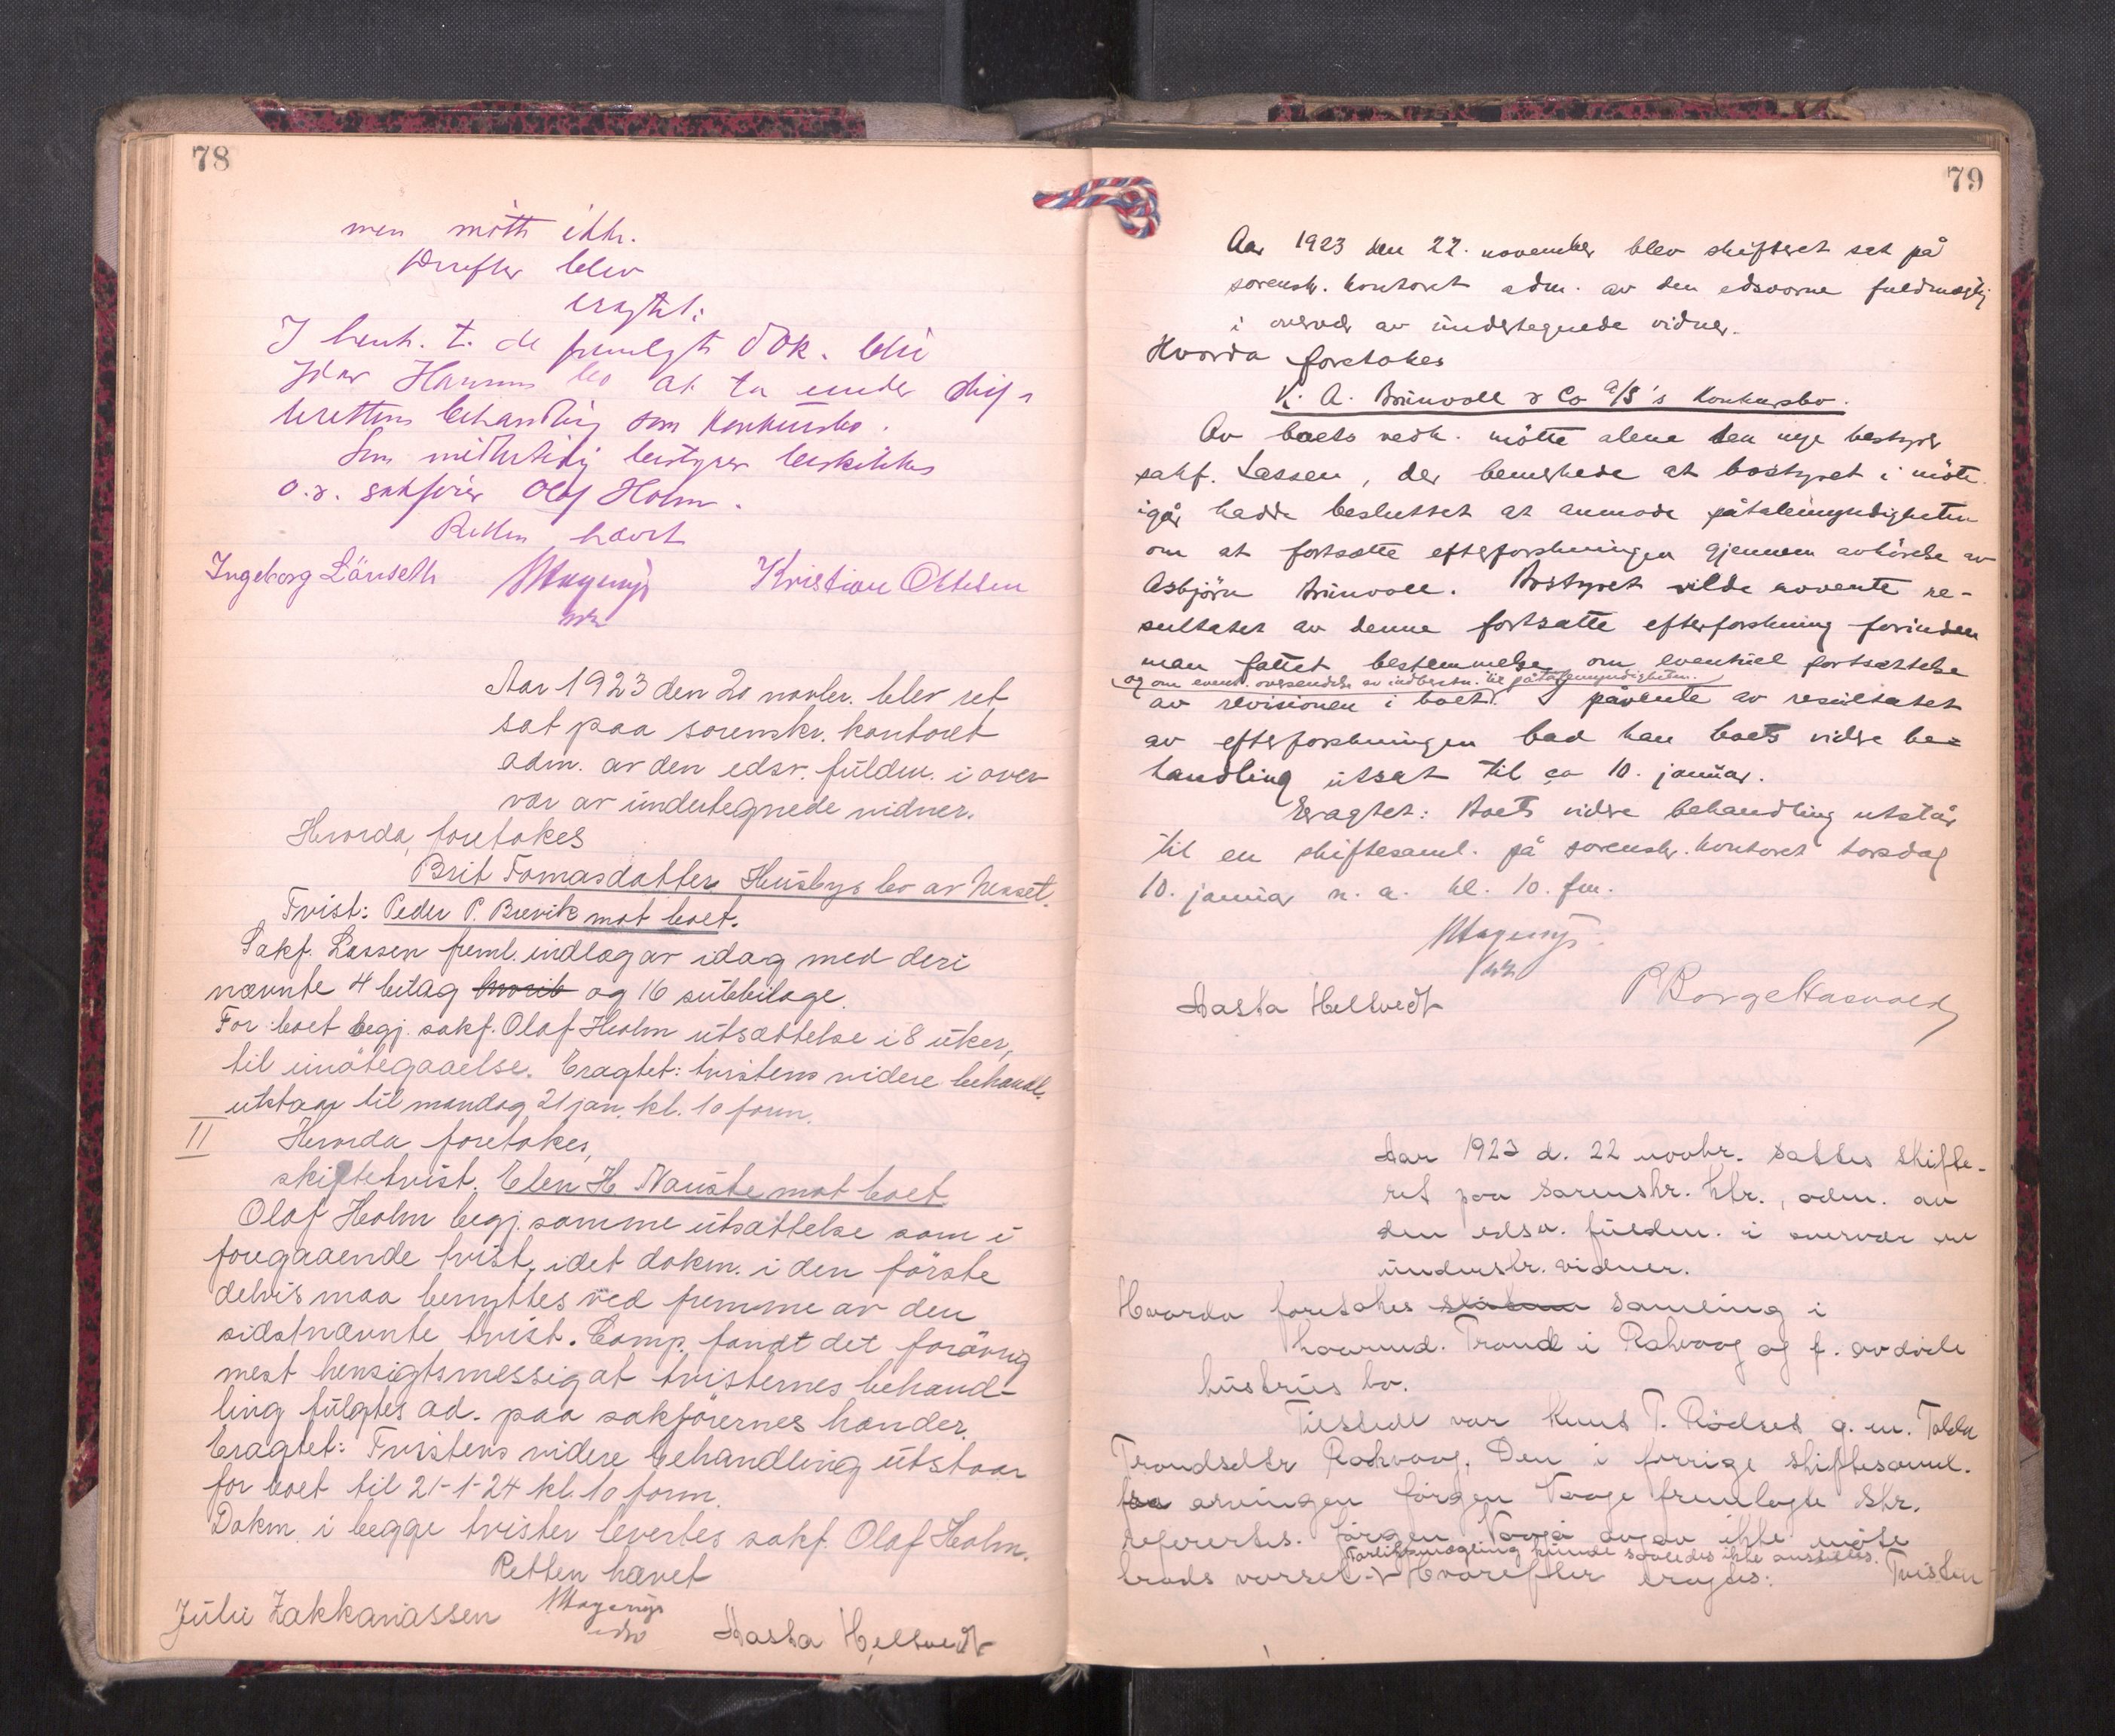 78
men mötte ikke.
Derefter blev
eragtet:
I henh. t. de fremlagte dok. blir
Idar bo at ta under skif-
terettens behandling som konkursbo.
Som midlertidig bestyrer beskikkes
o.r. sakförer Olaf Holm.
Retten hævet
Ingeborg Lönseth Kristian Ottesen
Aar 1923 den 20 novbr. blev ret
sat paa sorenskr. kontoret
adm. av den edsv. fuldm. i over-
vær av undertegnede vidner.
Hvorda foretokes
Brit Tomasdatter Husbys bo av Nesset.
Tvist: Peder P. Brevik mot boet.
Sakf. Lassen freml. indlæg av idag med deri
nævnte 4 bilag hvorib og 16 subbilage.
For boet begj. sakf. Olaf Holm utsættelse i 8 uker,
til imötegaaelse. Eragtet: tvistens videre behandl.
utstaar til mandag 21 jan. kl. 10 form.
II Hvorda foretokes,
skiftetvist. Elen H. Nauste mot boet
Olaf Holm begj. samme utsættelse som i
foregaaende tvist, idet dokm. i den förste
delvis maa benyttes ved fremme av den
sidstnævnte tvist. Comp. fandt det forövrig
mest hensigtsmessig at tvisternes behand-
ling fulgtes ad. paa sakförernes hænder.
Eragtet: Tvistens videre behandling utstaar
for boet til 21-1-24 kl. 10 form.
Dokm. i begge tvister levertes sakf. Olaf Holm.
Retten hævet
Julie Zakkariassen Aasta Hellvedt
79
Aar 1923 den 22. november blev skifteret sat på
sorenskr. kontoret adm. av den edsvorne fuldmægtig
i overvær av undertegnede vidner.
Hvorda foretokes
K. A. Brünvoll & Co A/S's konkursbo.
Av boets vedk. mötte alene den nye bestyrer
sakf. Lassen, der bemerkede at bostyret i möte
igår hadde besluttet at anmode påtalemyndigheten
om at fortsætte efterforskningen gjennem avhörelse av
Asbjörn Brünvoll. Bostyret vilde avvente re-
sultatet av denne fortsatte efterforskning forinden
man fattet bestemmelse om eventuel fortsættelse
og om event. oversendelse av indberetn. til påtalemyndigheten.
av revisionen i boet. I påvente av resultatet
av efterforskningen bad han boets videre be-
handling utsat til ca 10. januar.
Eragtet: Boets videre behandling utstår
til en skiftesaml. på sorenskr. kontoret torsdag
10. januar n. a. kl. 10. fm.
Aasta Hellvedt P Borge Hasvold
Aar 1923 d. 22 novbr. sattes skifte-
ret paa sorenskr. ktr., adm. av
den edsv. fuldm. i overvær av
underskr. vidner.
Hvorda foretokes samling i
Trond i Rakvaag og f. avdöde
hustrus bo.
Tilstede var Knut T. Rødset g. m. Talda
Trondsdtr Rakvaag. Den i forrige skiftesaml.
fra arvingen Jörgen Vaage fremlagte skr.
refereres. Jörgen Vaage avgav ikke möte
Forliksmægling kunde saaledes ikke anstilles.
trods varsel. Hvorefter eragtes: Tvisten